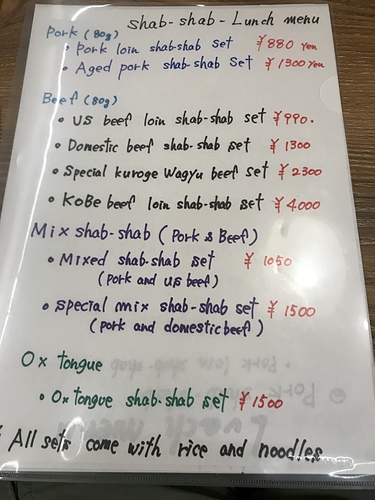 shab-shab-Lunch menu
Pork (80g)
• Pork loin shab-shab set ¥880 yen
• Aged pork shab-shab set ¥1300 yen
Beef (80g)
• US beef loin shab-shab set ¥990.
• Domestic beef shab-shab set ¥1300
• Special kuroge Wagyu beef set ¥2300
• KoBe beef loin shab-shab set ¥4000
Mix shab-shab (Pork & Beef)
• Mixed shab-shab set ¥1050
(pork and us beef)
• special mix shab-shab set ¥1500
(pork and domestic beef)
Ox tongue
• Ox tongue shab-shab set ¥1500
All sets come with rice and noodles